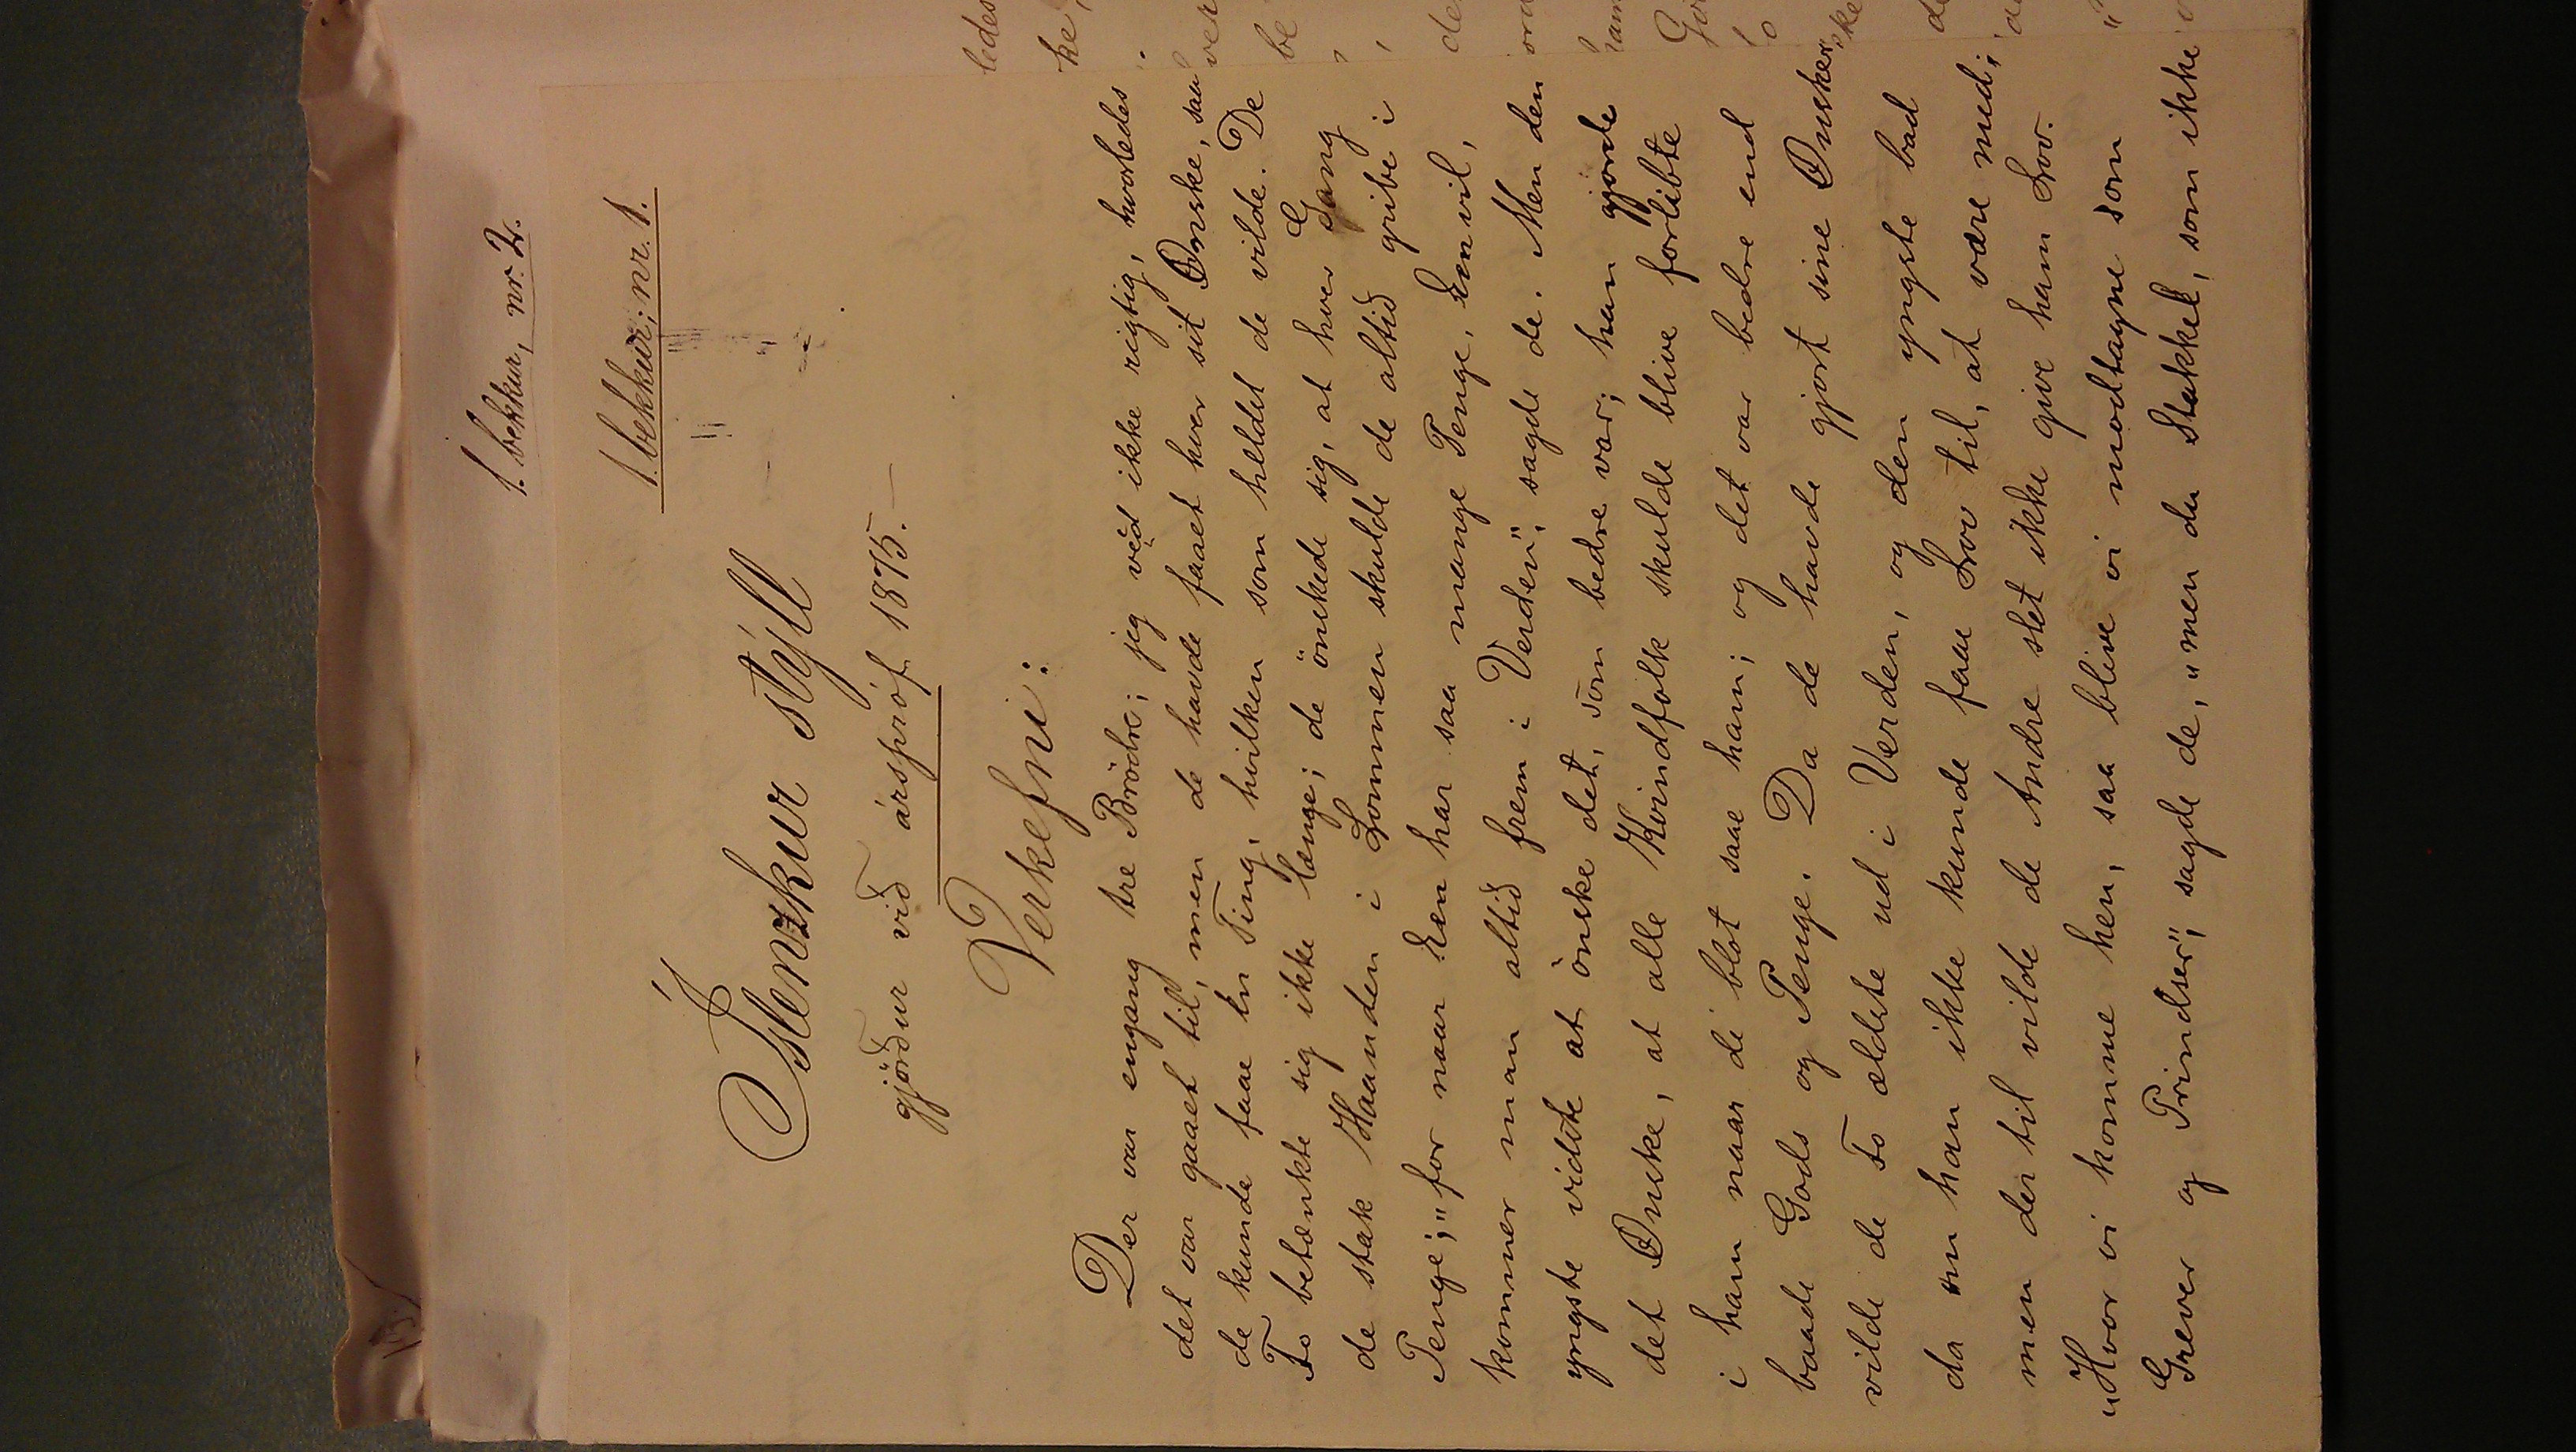 1. bekkur, nr. 2.
1. bekkur; nr. 1.
Íslenzkur stýll
gjörður við árspróf 1875.
Verkefni:
Der var engang tre Brödre; jeg véd ikke rigtig, hvorledes
det var gaaet til, men de havde faaet hver sit Ønske, saa
de kunde faae en Ting, hvilken som heldst de vilde. De
To betænkte sig ikke længe; de önskede sig, at hver Gang
de stak Haanden i Lommen skulde de altid gribe i
Penge; „for naar Een har saa mange Penge, Een vil,
kommer man altid frem i Verden", sagde de. Men den
yngste vidste at önske det, som bedre var; han gjorde
det Ønske, at alle Kvindfolk skulde blive forlibte
i ham naar de blot saae ham; og det var bedre end
baade Gods og Penge. Da de havde gjort sine Ønsker,
vilde de To ældste ud i Verden, og den yngste bad
da om han ikke kunde faae Lov til, at være med;
men der til vilde de Andre slet ikke give ham Lov.
„Hvor vi komme hen, saa blive vi modtagne som
Grever og Prindser", sagde de, „men du Stakkel, som ikke